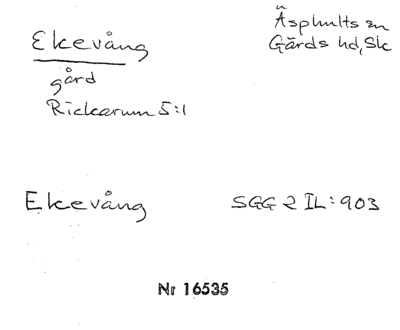 Ekevång
Äsphults sn
Gärds hd, Sk
gård
Rickarum 5:1
Ekevång
SGG 2 IL:903
Nr 16535